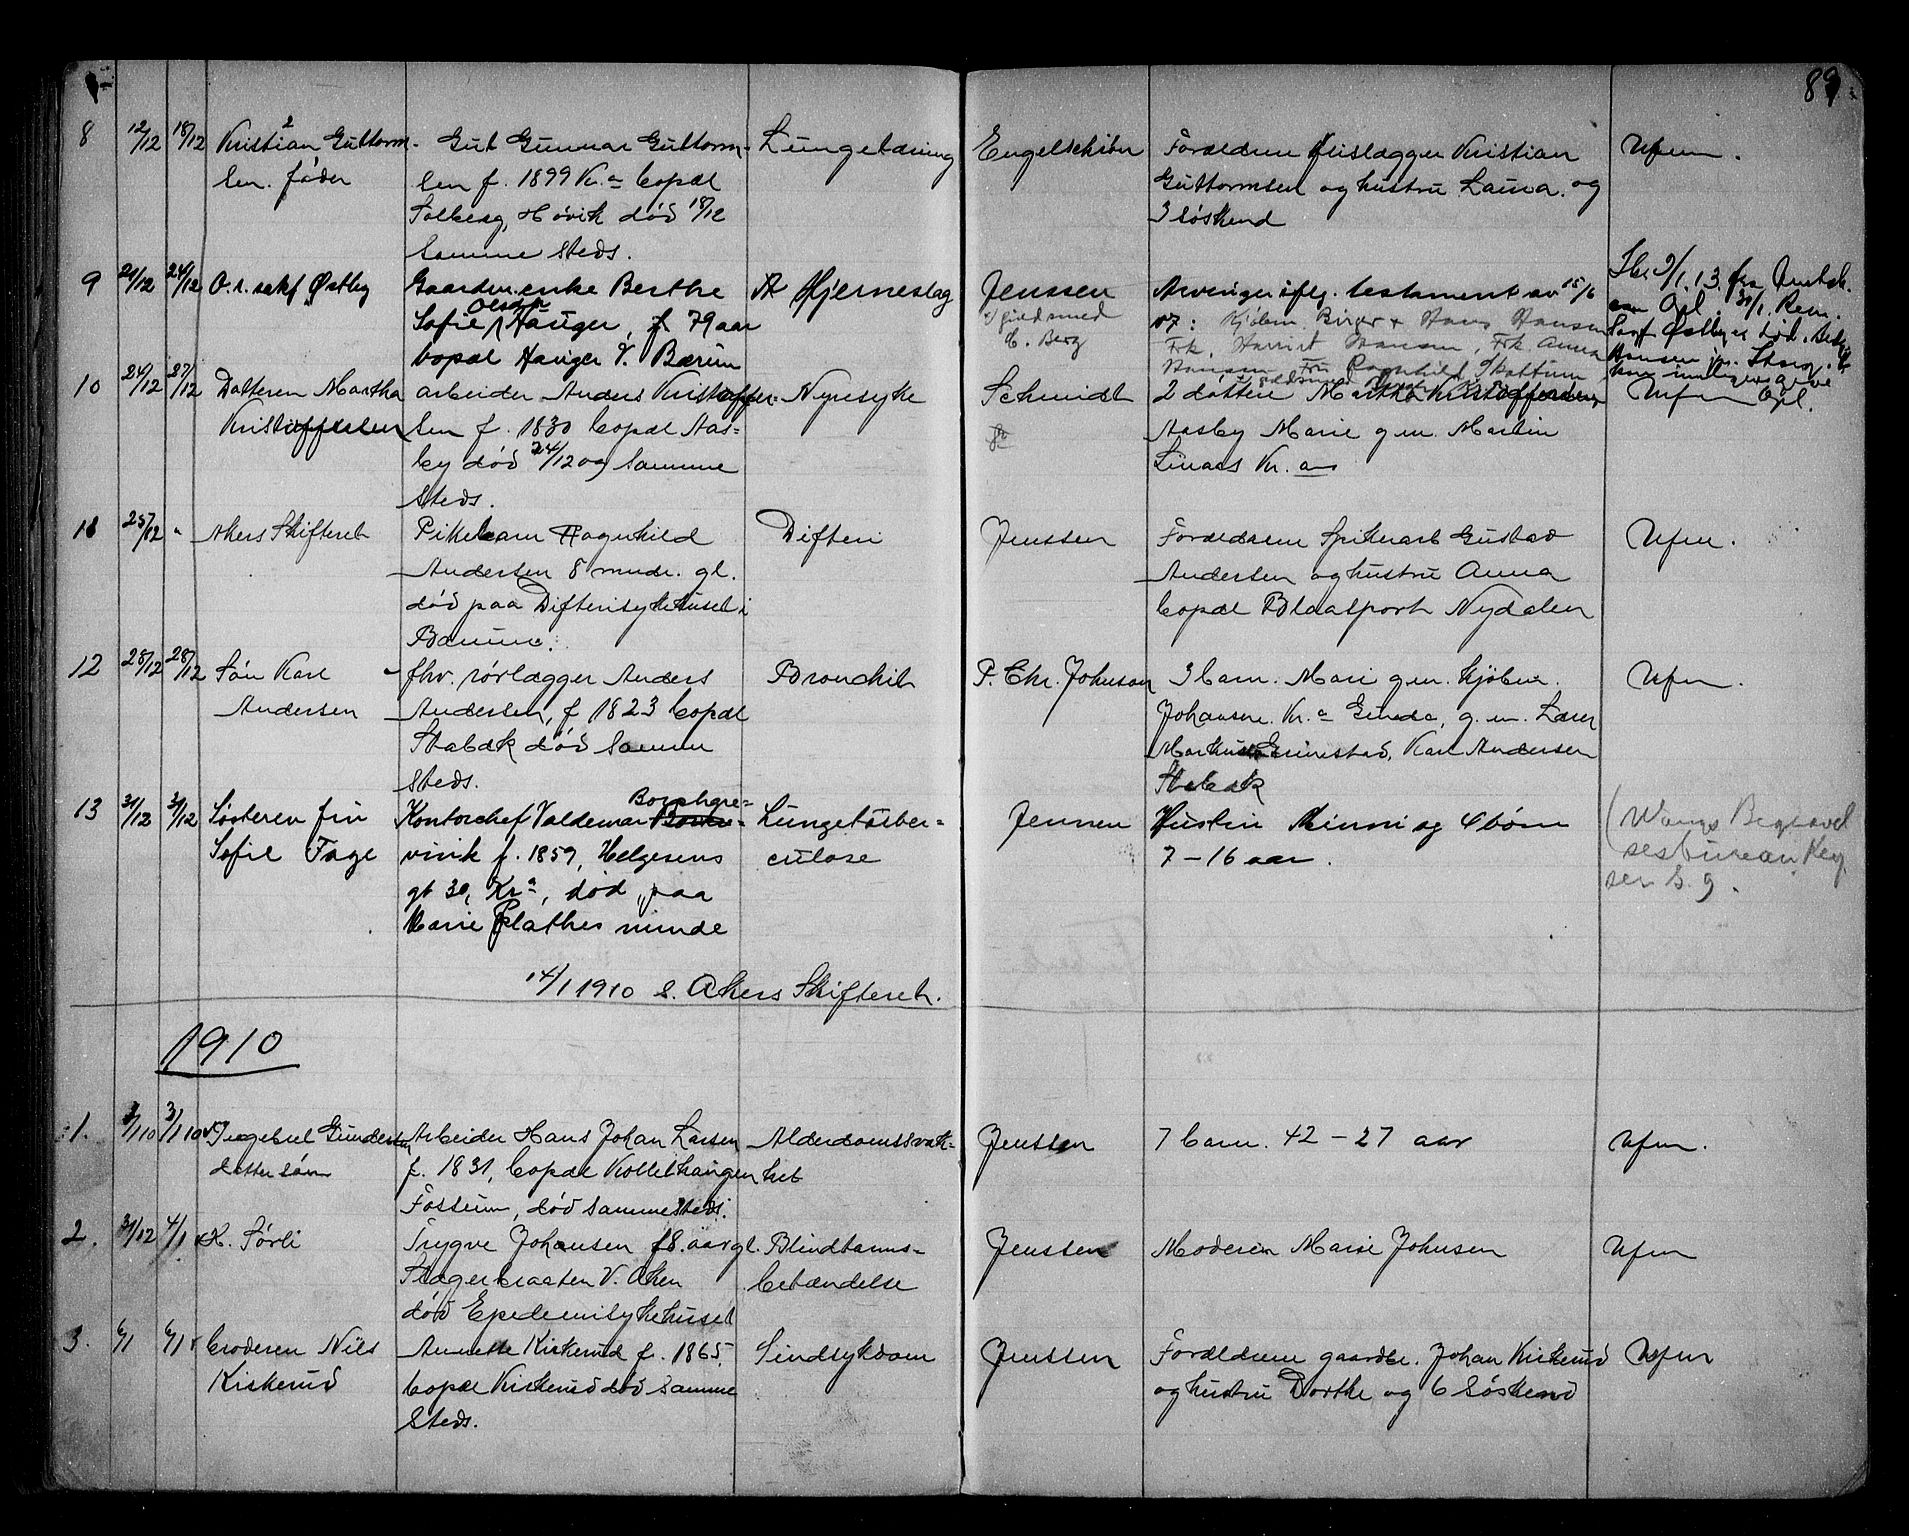 89
8 12/12 18/12 Kristian Guttorm-
sen. fader
Gut Gunnar Guttorm-
sen f. 1899 Kr.a bopæl
Solberg, Høvik død 18/12
samme steds.
Lungetæring
Engelschiøn
Forældrene Kristian
Guttormsen og hustru Laura. og
3 søskend
Ufm.
9 21/12 24/12 O.r.sakf Østby
Gaardm.enke Berthe
Sofie Olsdtr Hauger, f. 79 aar
bopæl Hauger V. Bærum
Hjerneslag
Jenssen
guldsmed
C. Berg
Arvinger iflg. testament av 15/6
07: Kjøbm. Birger + Hans Hansen
Frk. Harriet Hansen, Frk. Anna
Hansen Fru Ragnhild Skottum
10 24/12 27/12 Datteren Martha
Kristoffersen
arbeider Anders Kristoffer-
sen f. 1830 bopæl Aas-
by død 24/12 og samme
steds.
Nyresyke
Schmidt
2 døttre Martha Kristoffersen,
Aasby Marie g.m. Martin
Kr.a
Ufm
11 25/12 " Akers Skifteret
Pikebarn Ragnhild
Andersen 8 mndr. gl.
død paa Difterisykehuset i
Bærum.
Difteri
Jenssen
Forældrene Gustav
Andersen og hustru Anna
bopæl Blaalport Nydalen
Ufm.
12 28/12 28/12 Søn Karl
Andersen
fhv. rørlægger Anders
Andersen, f 1823 bopæl
Stabæk død samme
steds.
Bronchit
P. Chr. Johnson
3 barn. Mari g.m. Kjøbm.
Johansen. Kr.a g.m. Lærer
Markus Grinestad, Karl Andersen
Stabæk
Ufm.
13 31/12 31/12 Søsteren fru
Sofie Fage
Kontorchef Valdemar Borchgre-
vink f. 1859, Helgesens
gt 30, Kr.a, død paa
Marie Plathes minde
Lungetuber-
culose
Jenssen
Hustru Minni og 4 børn
7 – 16 aar.
(Wangs Begravel
sesbureau
14/1 1910 s. Akers Skifteret.
1910
1. 3/1 10 3/1 10 Ingebret Gundersen
dattersøn
Arbeider Hans Johan Larsen
f. 1831, bopæl Kollethaugen
Fossum, død sammesteds.
Alderdomssvak-
het
Jenssen
7 barn. 42 – 27 aar
Ufm.
2. 31/12 4/1 K. Sørli
Trygve Johansen 18 aar gl.
Slagerbraaten V. Aker
død Epedemisykehuset
Blindtarms-
betændelse
Jenssen
Moderen Marie Johnsen
Ufm
3. 6/1 6/1 broderen Nils
Kirkerud
Annette Kirkerud f. 1865,
bopæl Kirkerud død samme
steds.
Sindsykdom
Jenssen
Forældrene gaardbr. Johan Kirkerud
og hustru Dorthe og 6 søskend
Ufm